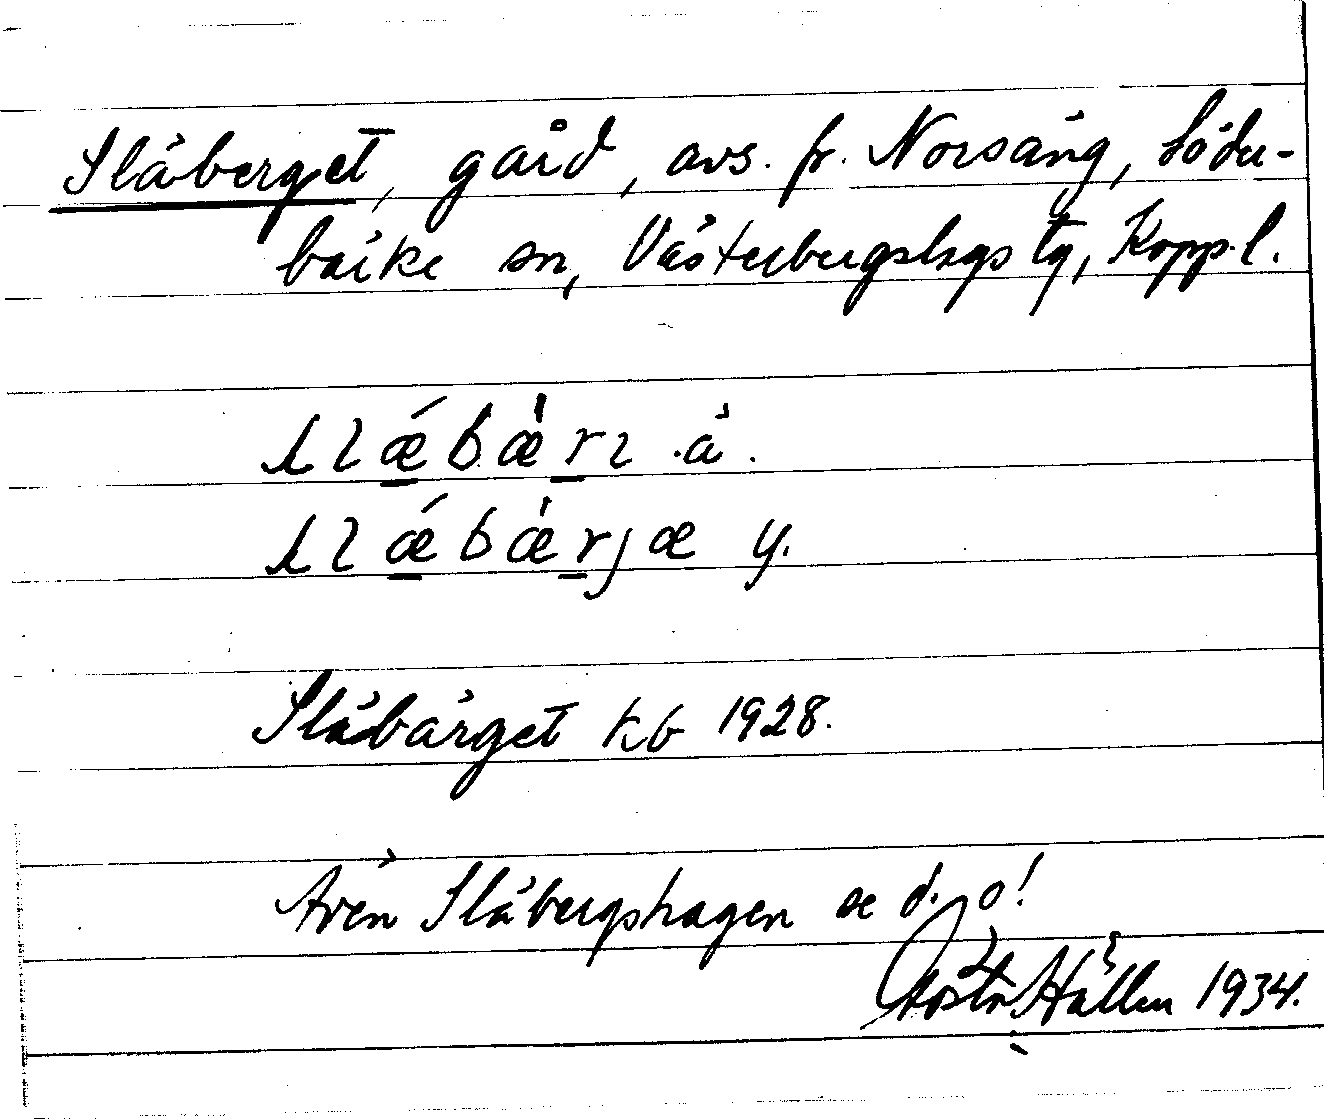 Släberget, gård, avs. fr. Norsäng, Söder-
bärke sn, Västerbergslags tg, Kopp. l.
slǽbærı ä.
slǽbærjæ y.
Släbärget kb 1928.
Även Släbergshagen se d. o!
Gösta Hallen 1934.